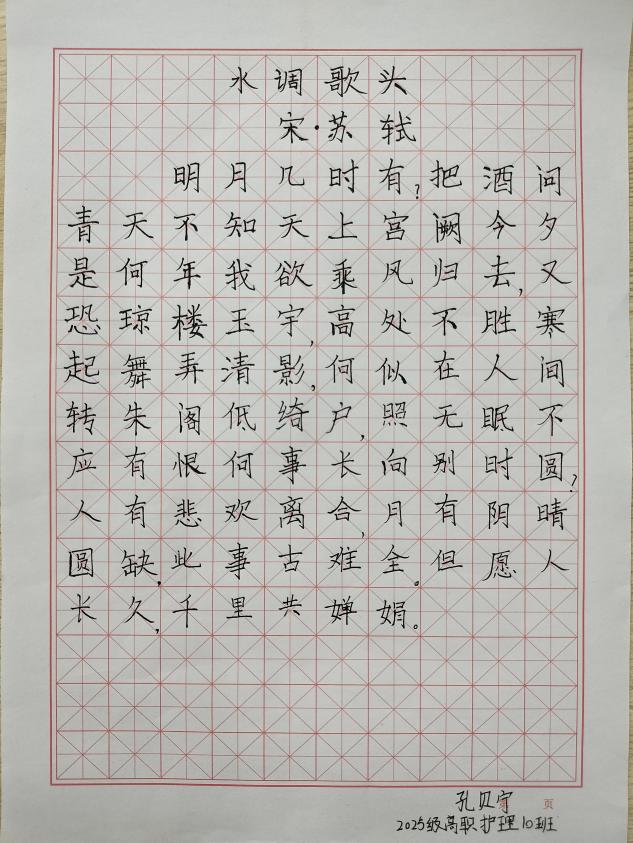 水调歌头
宋·苏轼
明月几时有?把酒问
青天不知天上宫阙今夕
是何年我欲乘风归去,又
恐琼楼玉宇,高处不胜寒
起舞弄清影,何似在人间
转朱阁低绮户,照无眠不
应有恨何事长向别时圆?
人有悲欢离合,月有阴晴
圆缺,此事古难全。但愿人
长久,千里共婵娟。
孔贝宁 页
2025级高职护理10班